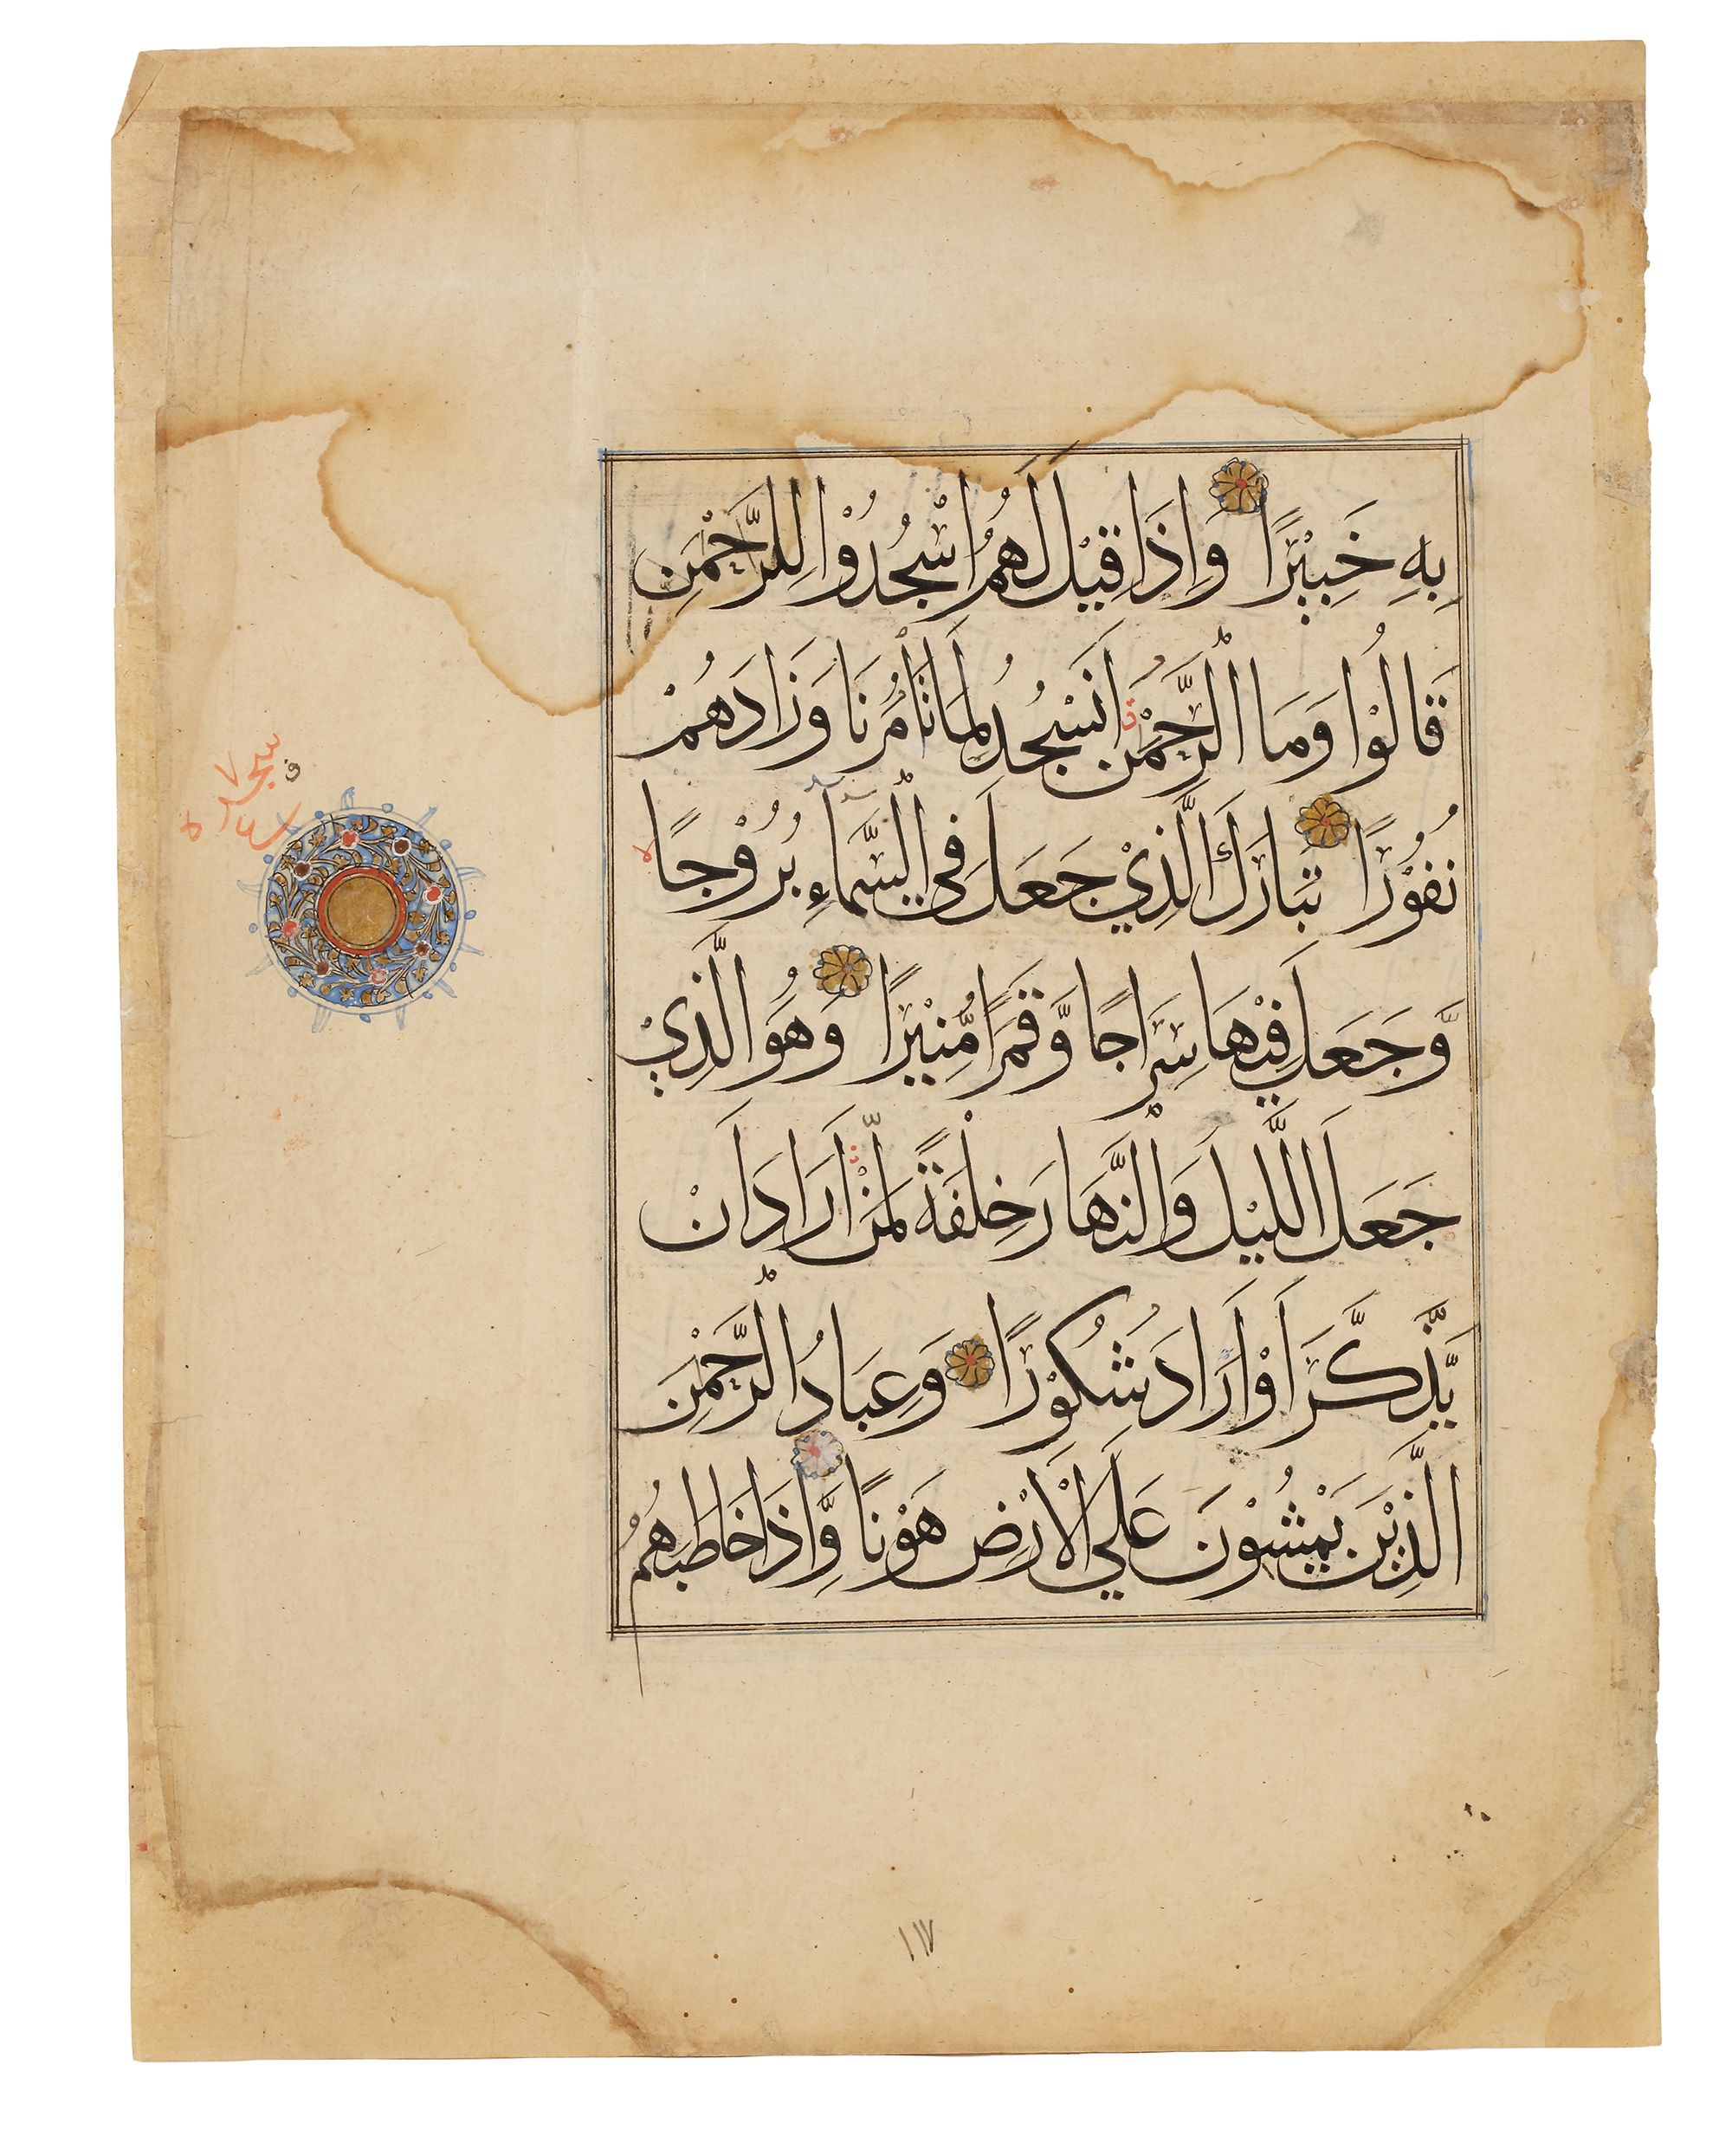 بِهِ خَبِيْرًا وَاِذَا قِيْلَ لَهُمُ اسْجُدُوْا لِلرَّحْمٰنِ
قَالُوْا وَمَا الرَّحْمٰنُ اَنَسْجُدُ لِمَا تَاْمُرُنَا وَزَادَهُمْ
نُفُوْرًا تَبَارَكَ الَّذِيْ جَعَلَ فِي السَّمَاءِ بُرُوْجًا
وَّجَعَلَ فِيْهَا سِرَاجًا وَّقَمَرًا مُّنِيْرًا وَهُوَ الَّذِيْ
جَعَلَ اللَّيْلَ وَالنَّهَارَ خِلْفَةً لِّمَنْ اَرَادَ اَنْ
يَّذَّكَّرَ اَوْ اَرَادَ شُكُوْرًا وَعِبَادُ الرَّحْمٰنِ
الَّذِيْنَ يَمْشُوْنَ عَلَي الْاَرْضِ هَوْنًا وَّاِذَا خَاطَبَهُمُ
سجدة
١١٧